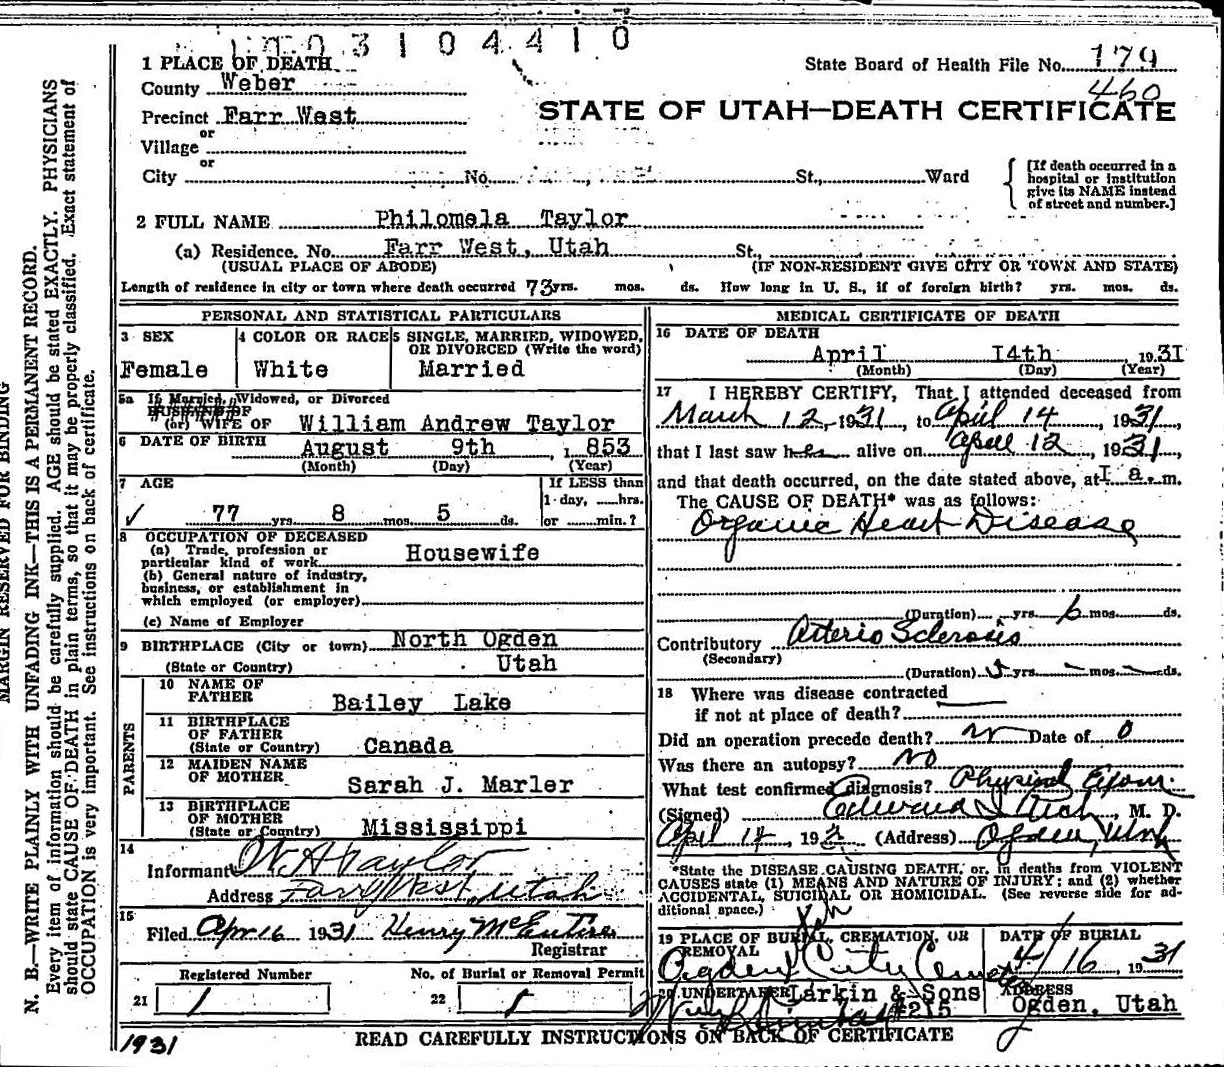 1003104410
1 PLACE OF DEATH
State Board of Health File No. 179
460
County Weber
STATE OF UTAH—DEATH CERTIFICATE
Precinct Farr West
or
Village
or
City No. St., Ward
[If death occurred in a hospital or institution give its NAME instead of street and number.]
2 FULL NAME Philomela Taylor
(a) Residence. No. Farr West, Utah St.,
(USUAL PLACE OF ABODE) (IF NON-RESIDENT GIVE CITY OR TOWN AND STATE)
Length of residence in city or town where death occurred 73 yrs. mos. ds. How long in U. S., if of foreign birth? yrs. mos. ds.
PERSONAL AND STATISTICAL PARTICULARS
3 SEX
Female
4 COLOR OR RACE
White
5 SINGLE, MARRIED, WIDOWED, OR DIVORCED (Write the word)
Married
5a If Married, Widowed, or Divorced
HUSBAND OF
(or) WIFE OF William Andrew Taylor
6 DATE OF BIRTH August 9th, 1853
(Month) (Day) (Year)
7 AGE
77 yrs. 8 mos. 5 ds.
If LESS than
1 day, ......hrs.
or ......min.?
8 OCCUPATION OF DECEASED
(a) Trade, profession or particular kind of work Housewife
(b) General nature of industry, business, or establishment in which employed (or employer)
(c) Name of Employer
9 BIRTHPLACE (City or town) North Ogden
(State or Country) Utah
PARENTS
10 NAME OF FATHER Bailey Lake
11 BIRTHPLACE OF FATHER (State or Country) Canada
12 MAIDEN NAME OF MOTHER Sarah J. Marler
13 BIRTHPLACE OF MOTHER (State or Country) Mississippi
14
Informant W A Taylor
Address Farr West, Utah
15
Filed Apr 16 1931 Henry McEntire
Registrar
Registered Number
21 1
No. of Burial or Removal Permit
22 1
MEDICAL CERTIFICATE OF DEATH
16 DATE OF DEATH
April 14th 1931
(Month) (Day) (Year)
17 I HEREBY CERTIFY, That I attended deceased from
March 12, 1931, to April 14, 1931,
that I last saw her alive on April 12, 1931,
and that death occurred, on the date stated above, at 1 a. m.
The CAUSE OF DEATH* was as follows:
Organic Heart Disease
(Duration) yrs. 6 mos. ds.
Contributory Arterio Sclerosis
(Secondary)
(Duration) 5 yrs. — mos. — ds.
18 Where was disease contracted
if not at place of death?
Did an operation precede death? no Date of 0
Was there an autopsy? No
What test confirmed diagnosis? Physical Exam.
(Signed) Edward I Rich, M. D.
April 14, 193 (Address) Ogden, Utah
*State the DISEASE CAUSING DEATH, or, in deaths from VIOLENT CAUSES state (1) MEANS AND NATURE OF INJURY; and (2) whether ACCIDENTAL, SUICIDAL OR HOMICIDAL. (See reverse side for additional space.)
19 PLACE OF BURIAL, CREMATION, OR REMOVAL
Ogden City Cemetery
DATE OF BURIAL
4/16, 1931
20 UNDERTAKER Larkin & Sons
#215
ADDRESS
Ogden, Utah
1931
READ CAREFULLY INSTRUCTIONS ON BACK OF CERTIFICATE
MARGIN RESERVED FOR BINDING
N. B.—WRITE PLAINLY WITH UNFADING INK—THIS IS A PERMANENT RECORD.
Every item of information should be carefully supplied. AGE should be stated EXACTLY. PHYSICIANS
should state CAUSE OF DEATH in plain terms, so that it may be properly classified. Exact statement of
OCCUPATION is very important. See instructions on back of certificate.